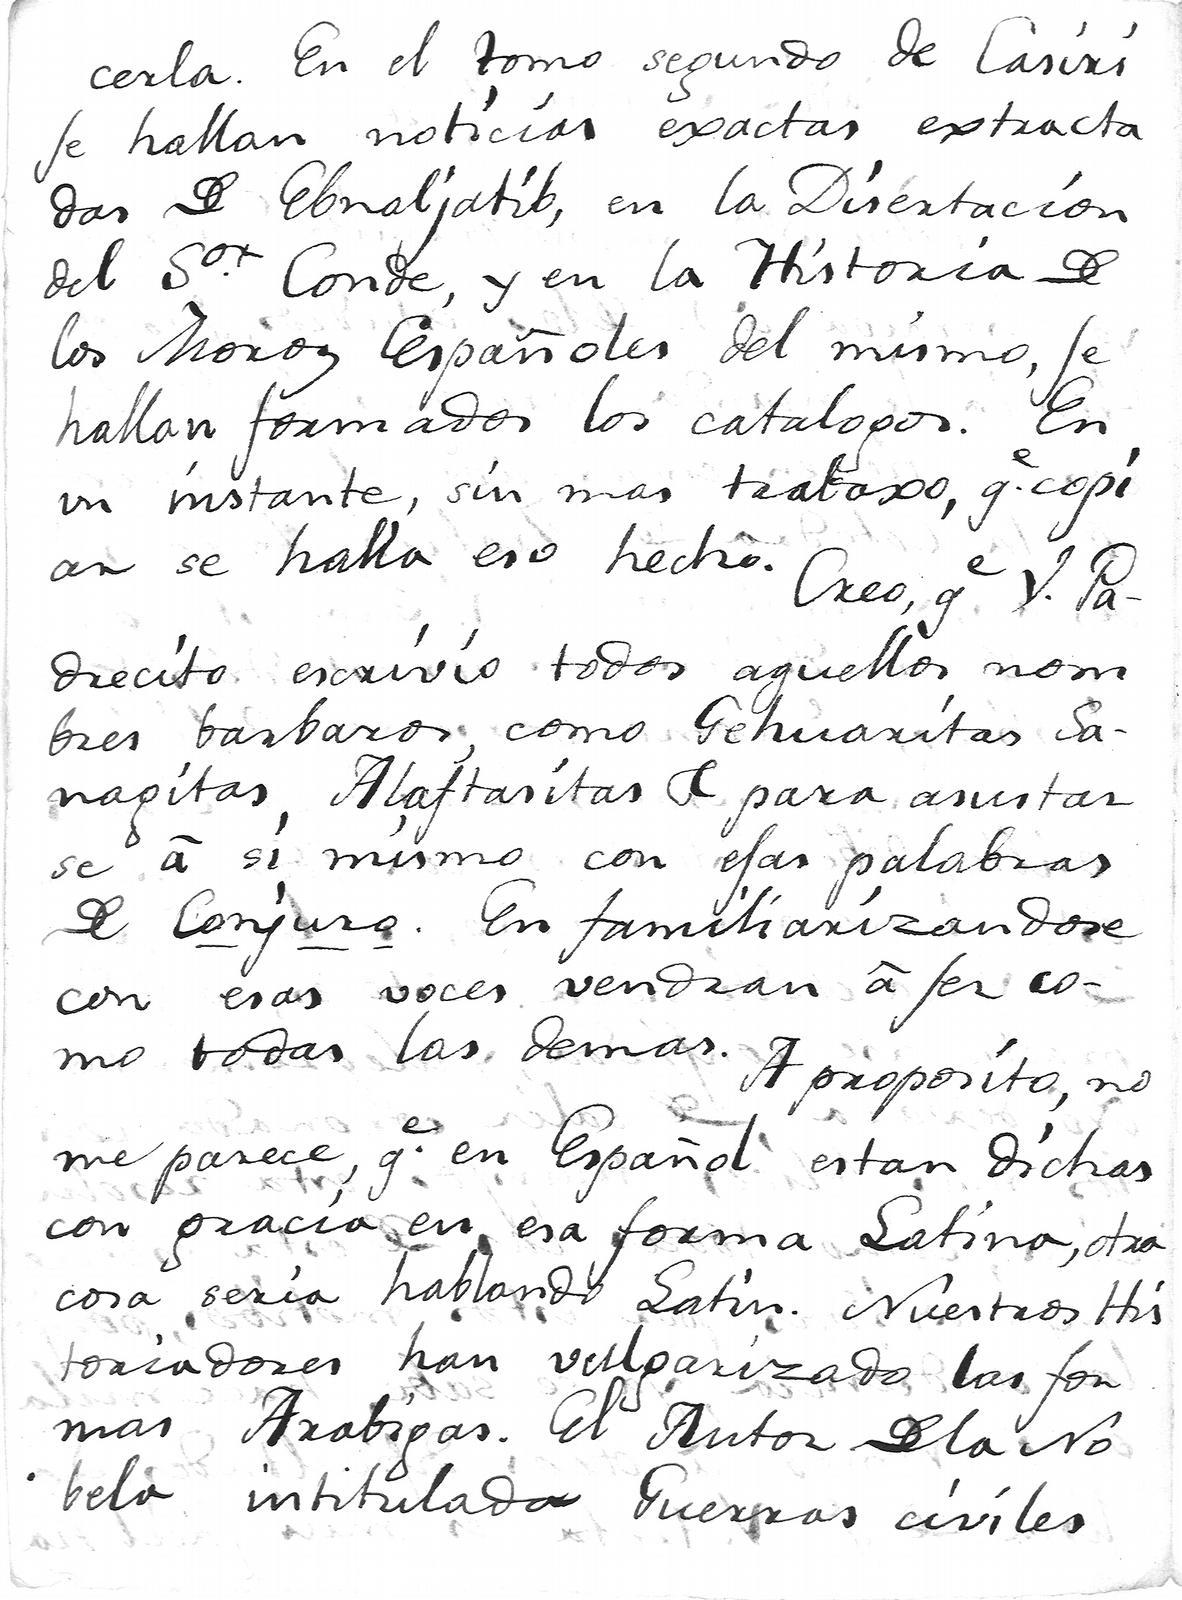 cerla. En el tomo segundo de Casiri
se hallan noticias exactas extracta
das de Ebnaljatib, en la Disertacion
del S.or Conde, y en la Historia de
los Moros Españoles del mismo, se
hallan formados los catalogos. En
un instante, sin mas trabaxo, q.e copi
ar se halla eso hecho. Creo, q.e V. Pa-
drecito escrivio todos aquellos nom
bres barbaros, como Gehuaritas Sa-
nagitas, Alaftasitas & para asustar
se â si mismo con esas palabras
de Conjuro. En familiarizandose
con esas voces vendran â ser co-
mo todas las demas. A proposito, no
me parece, q.e en Español estan dichas
con gracia en esa forma Latina, otra
cosa seria hablando Latin. Nuestros His
toriadores han vulgarizado las for
mas Arabigas. El Autor de la No
bela intitulada Guerras civiles